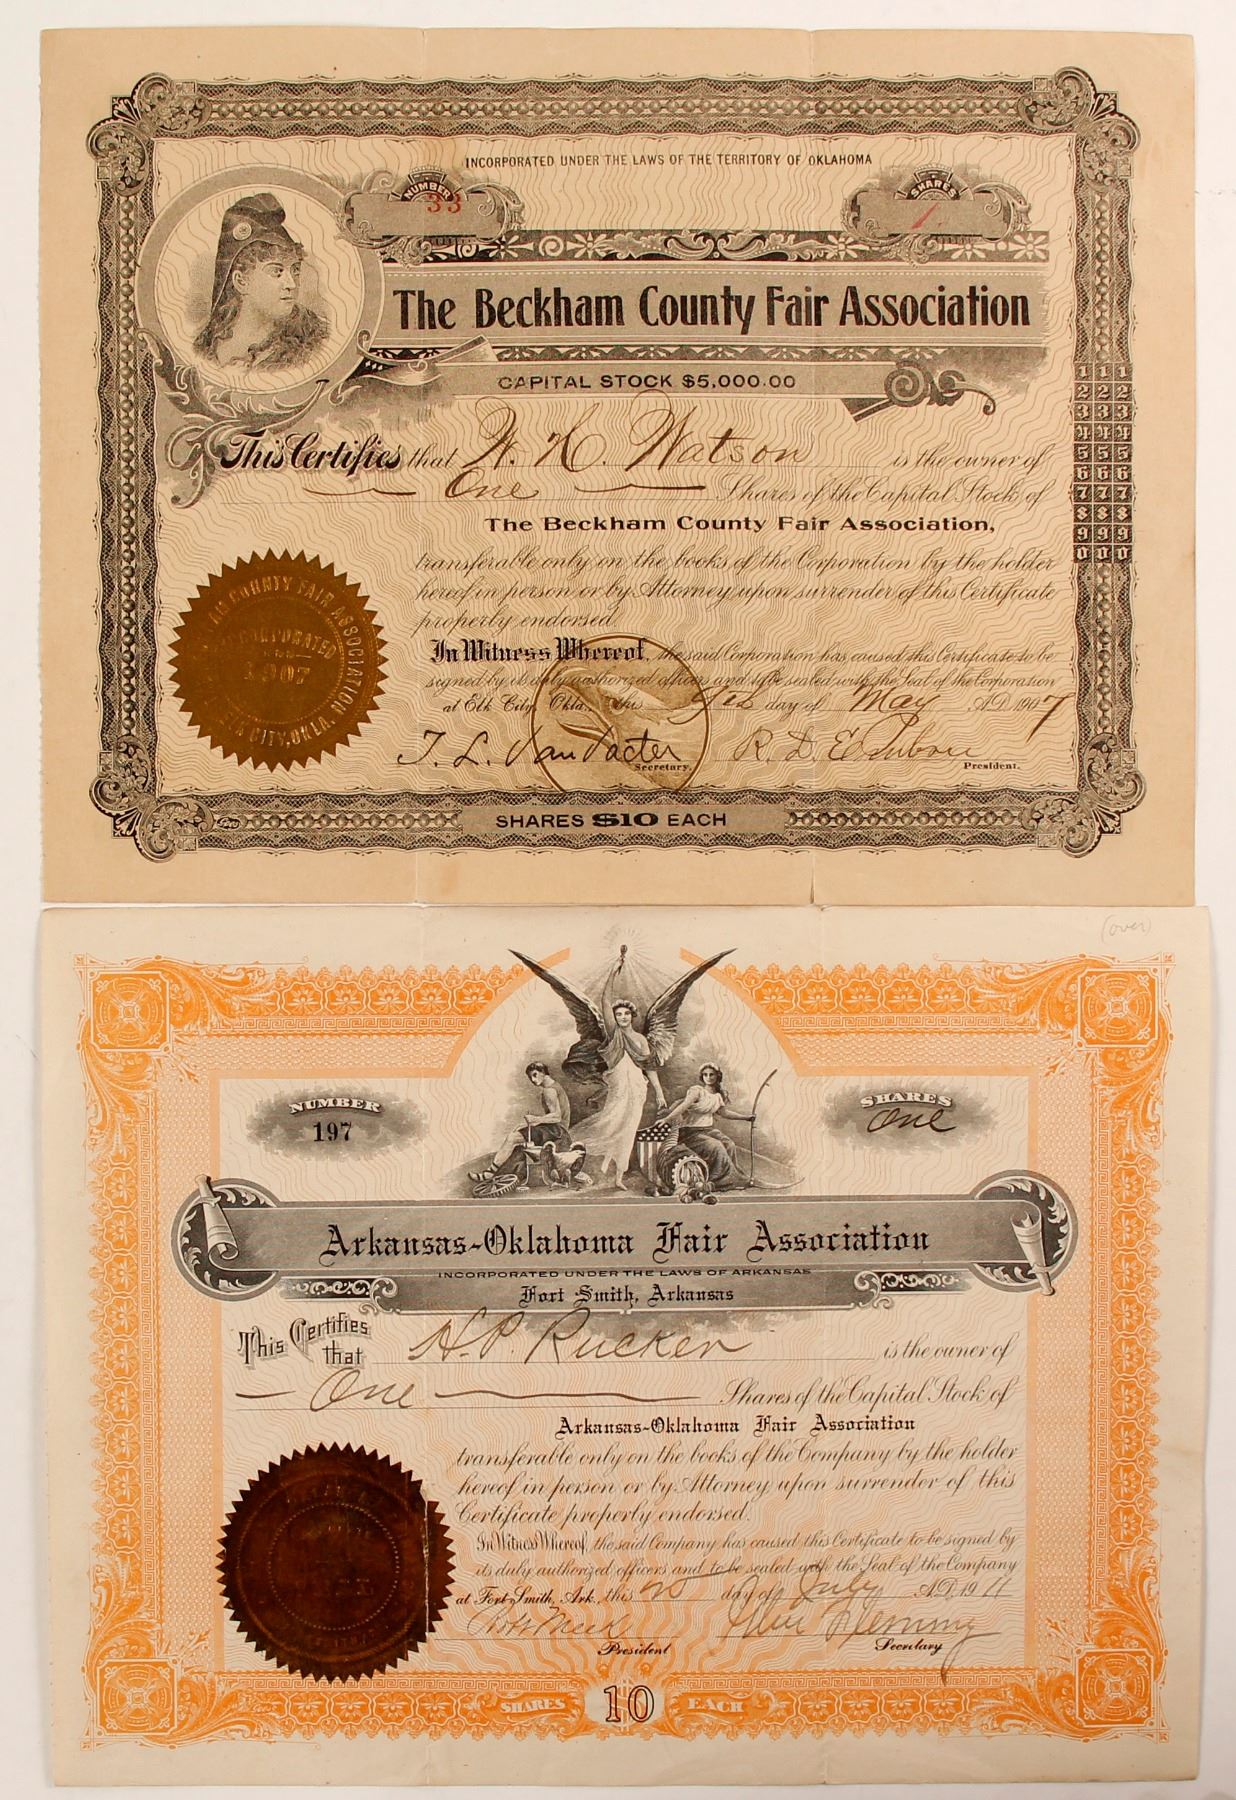 INCORPORATED UNDER THE LAWS OF THE TERRITORY OF OKLAHOMA
NUMBER
33
SHARES
1
The Beckham County Fair Association
CAPITAL STOCK $5,000.00
This Certifies that W. H. Watson is the owner of
One Shares of the Capital Stock of
The Beckham County Fair Association,
transferable only on the books of the Corporation by the holder
hereof in person or by Attorney upon surrender of this Certificate
properly endorsed.
In Witness Whereof, the said Corporation has caused this Certificate to be
signed by its duly authorized officers and to be sealed with the Seal of the Corporation
at Elk City, Okla. this day of May A.D. 1907
T. L. Van Vacter R. D.
Secretary. President.
SHARES $10 EACH
COUNTY FAIR ASSOCIATION,
INCORPORATED
1907
CITY, OKLA.
1 1 1
2 2 2
3 3 3
4 4 4
5 5 5
6 6 6
7 7 7
8 8 8
9 9 9
0 0 0
(over)
NUMBER
197
SHARES
One
Arkansas-Oklahoma Fair Association
INCORPORATED UNDER THE LAWS OF ARKANSAS
Fort Smith, Arkansas
This Certifies that H. P. Rucker is the owner of
One Shares of the Capital Stock of
Arkansas-Oklahoma Fair Association
transferable only on the books of the Company by the holder
hereof in person or by Attorney upon surrender of this
Certificate properly endorsed.
In Witness Whereof, the said Company has caused this Certificate to be signed by
its duly authorized officers and to be sealed with the Seal of the Company
at Fort Smith, Ark., this 20 day of July A.D. 1911
Meek Fleming
President Secretary
SHARES 10 EACH